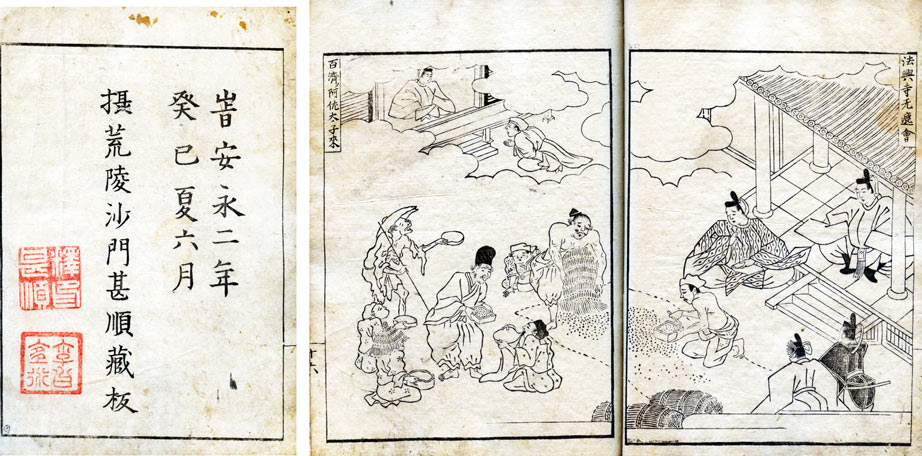 旹安永二年
癸巳夏六月
摂荒陵沙門甚順藏板
法興寺无遮會
百濟阿佐太子來